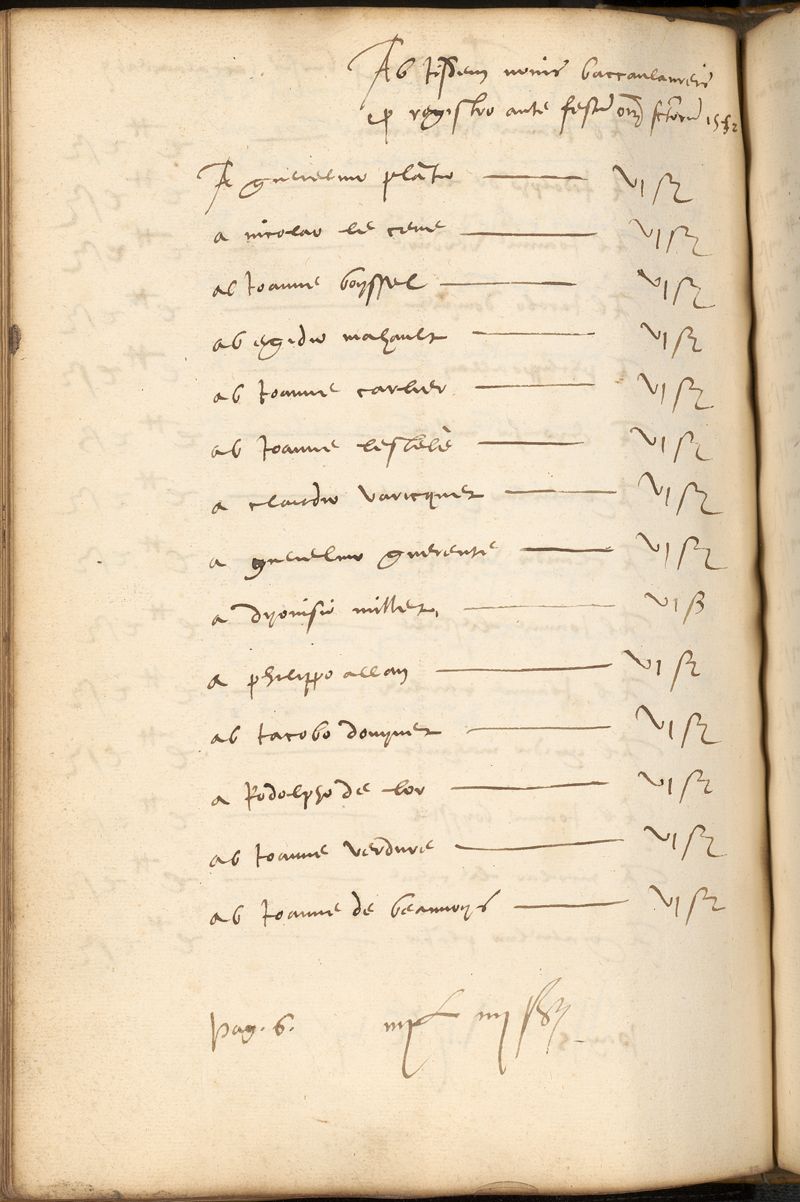 Ab iisdem novis baccaulaureis
p registro ante festū oīm sctorū 1532
A guilielmo platio vi sz
a nicolao le cene vi sz
ab Joanne boyssel vi sz
ab egidio mahault vi sz
ab Joanne carlier vi sz
ab Joanne leschele vi sz
a claudio varicquet vi sz
a guilielmo guerente vi sz
a dyonisio millet vi ß
a philippo allan vi sz
ab Jacobo dongnet vi sz
a Rodolpho de lor vi sz
ab Joanne verdure vi sz
ab Joanne de beauvoys vi sz
pag. 6. iiij L iiij